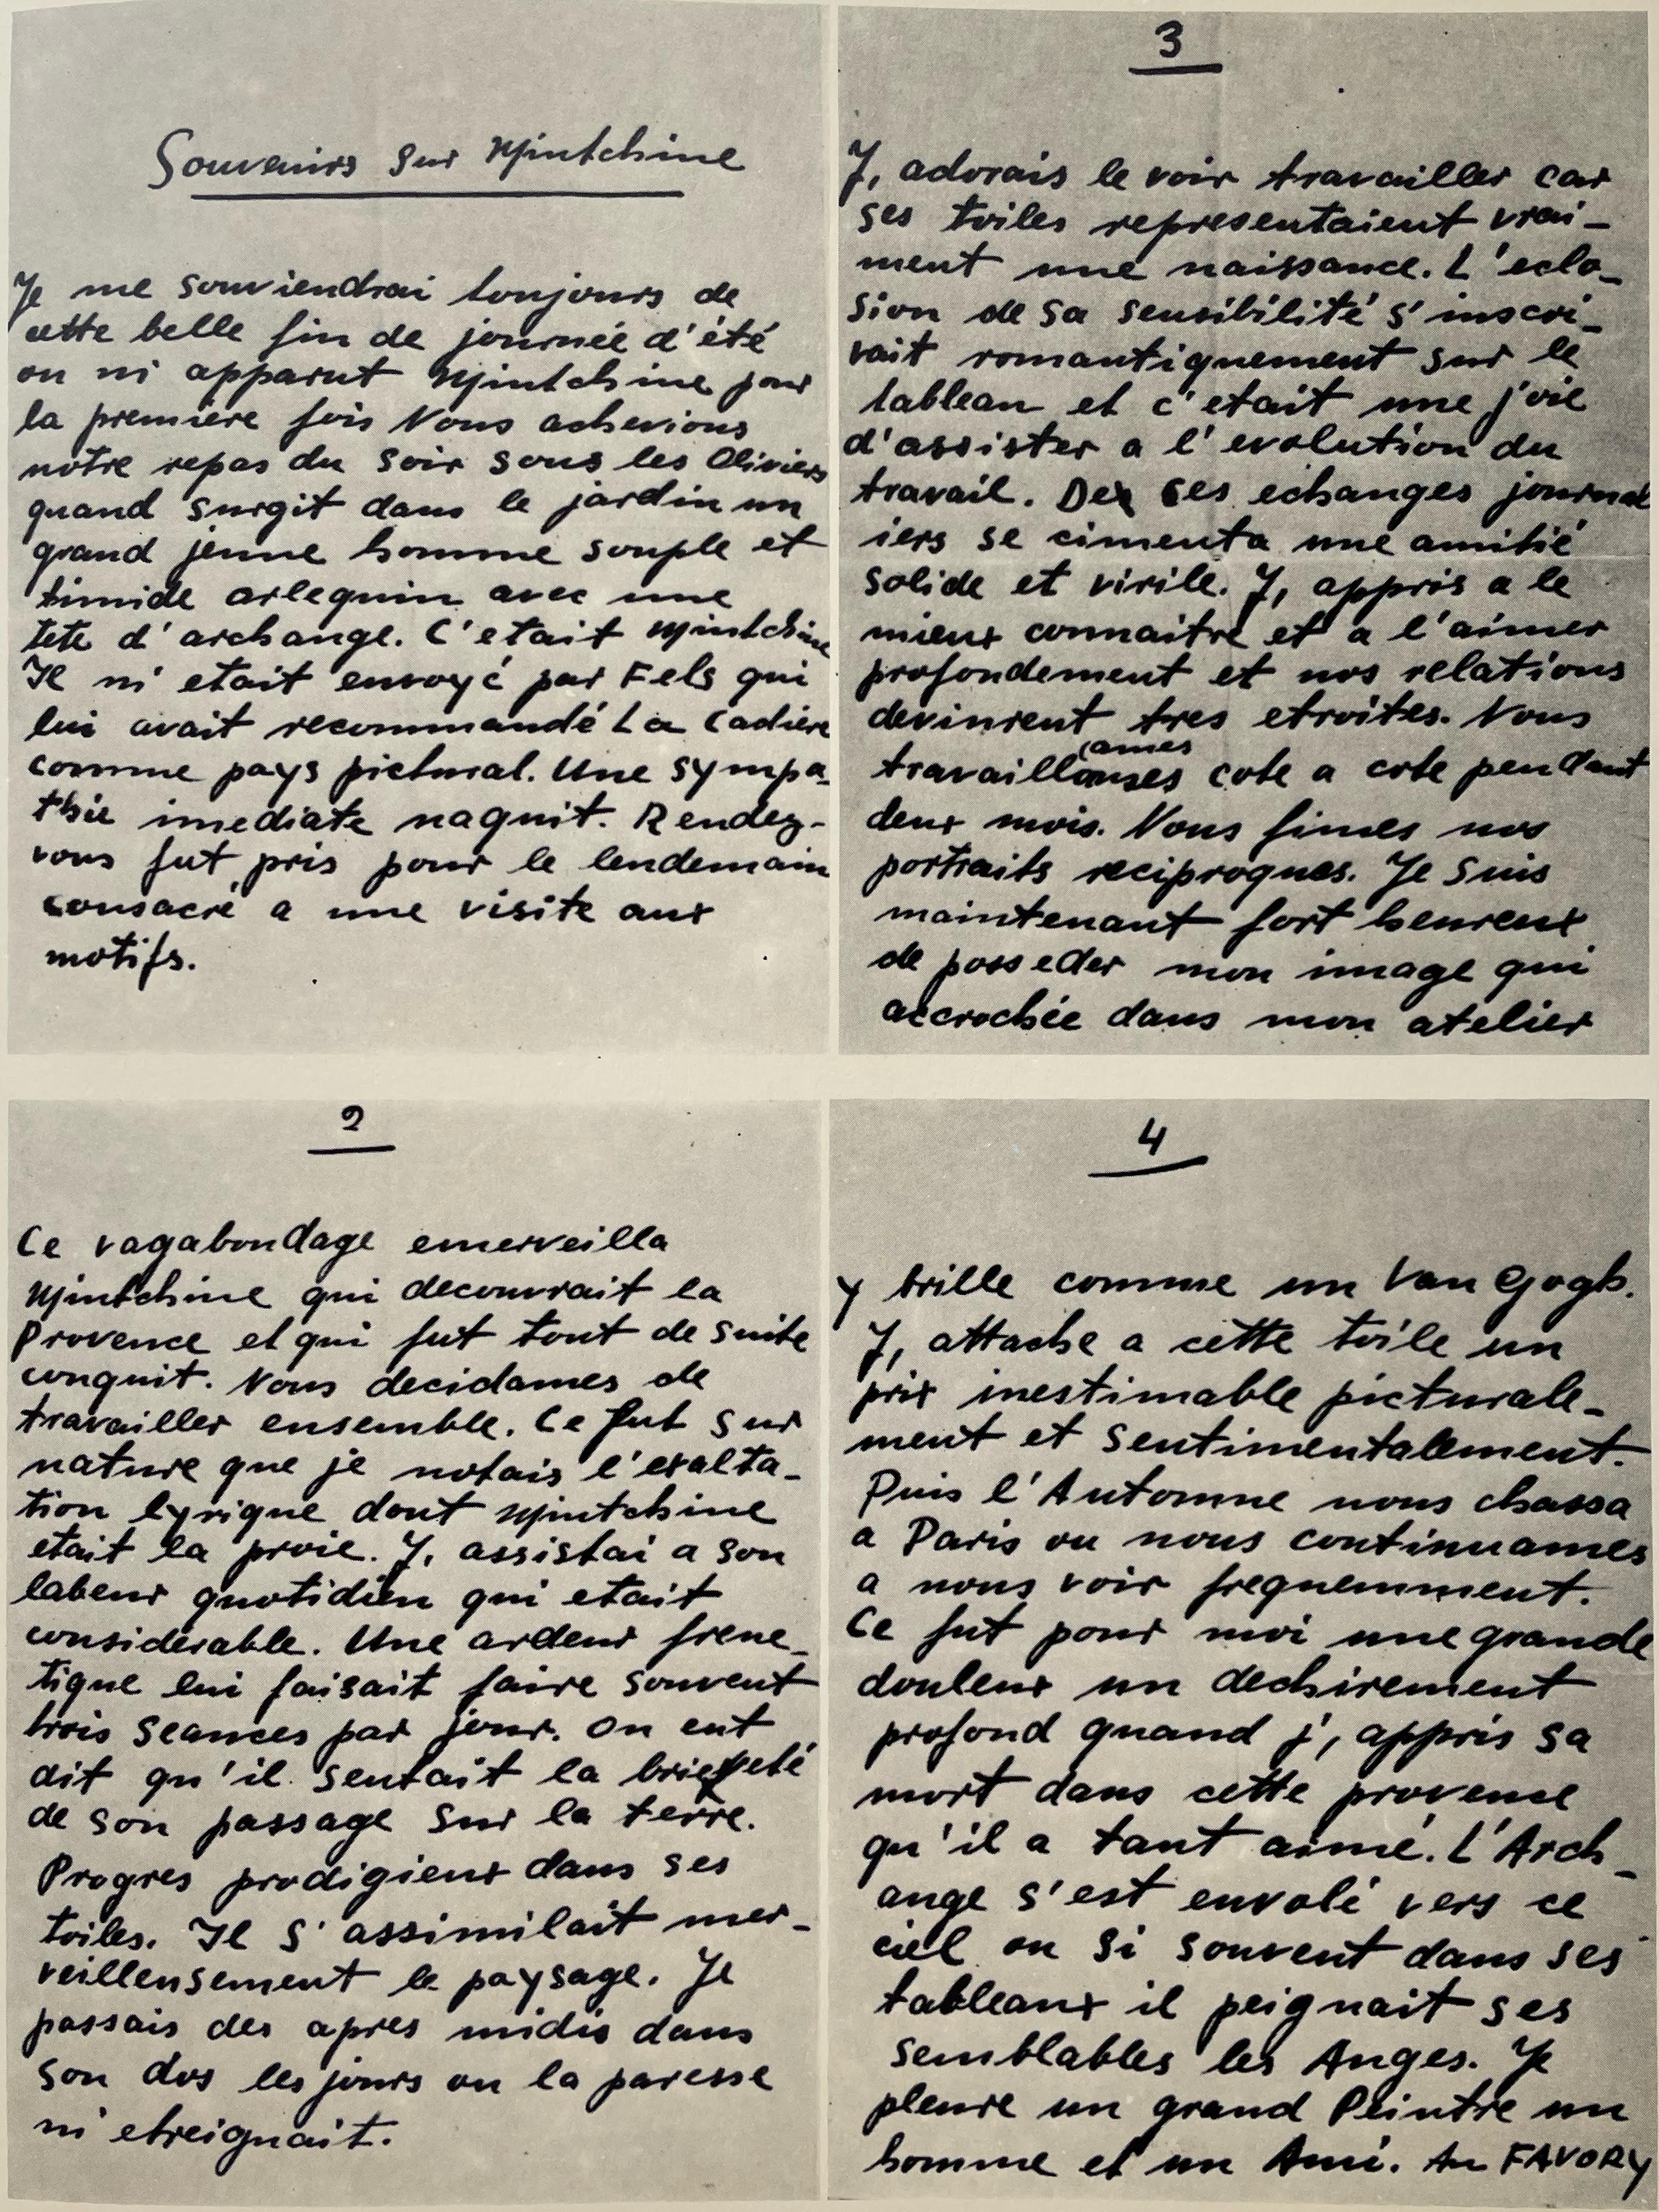 Souvenirs sur Mintchine
Je me souviendrai toujours de
cette belle fin de journée d'été
ou m'apparut Mintchine pour
la première fois Nous achevions
notre repas du soir sous les Oliviers
quand surgit dans le jardin un
grand jeune homme souple et
timide arlequin avec une
tete d'archange. C'etait Mintchine
Il m'etait envoyé par Fels qui
lui avait recommandé La Cadière
comme pays pictural. Une sympa-
thie imediate naquit. Rendez-
vous fut pris pour le lendemain
consacré a une visite aux
motifs.
2
Ce vagabondage emerveilla
Mintchine qui decouvrait la
Provence et qui fut tout de suite
conquit. Nous decidames de
travailler ensemble. Ce fut sur
nature que je notais l'exalta-
tion lyrique dont Mintchine
etait la proie. J, assistai a son
labeur quotidien qui etait
considérable. Une ardeur frene-
tique lui faisait faire souvent
trois seances par jour. On eut
dit qu'il sentait la brieveté
de son passage sur la terre.
Progres prodigieux dans ses
toiles. Il s'assimilait mer-
veilleusement le paysage. Je
passais des apres midis dans
son dos les jours ou la paresse
m'etreignait.
3
J, adorais le voir travailler car
ses toiles representaient vrai-
ment une naissance. L'eclo-
sion de sa sensibilité s'inscri-
vait romantiquement sur le
tableau et c'etait une joie
d'assister a l'evolution du
travail. De ces echanges journal
iers se cimenta une amitié
solide et virile. J, appris a le
mieux connaitre et a l'aimer
profondement et nos relations
devinrent tres etroites. Nous
travaillames cote a cote pendant
deux mois. Nous fimes nos
portraits reciproques. Je suis
maintenant fort heureux
de posseder mon image qui
accrochée dans mon atelier
4
y brille comme un Van Gogh.
J, attache a cette toile un
prix inestimable picturale-
ment et sentimentalement.
Puis l'Automne nous chassa
a Paris ou nous continuames
a nous voir frequemment.
Ce fut pour moi une grande
douleur un dechirement
profond quand j, appris sa
mort dans cette provence
qu'il a tant aimé. L'Arch-
ange s'est envolé vers ce
ciel ou si souvent dans ses
tableaux il peignait ses
semblables les Anges. Je
pleure un grand Peintre un
homme et un Ami. An FAVORY